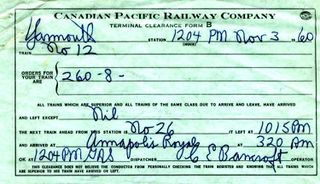 CANADIAN PACIFIC RAILWAY COMPANY
TERMINAL CLEARANCE FORM B
Yarmouth STATION 1204 PM Nov 3 60
TRAIN
No 12
ORDERS FOR YOUR TRAIN ARE 260-8-
ALL TRAINS WHICH ARE SUPERIOR AND ALL TRAINS OF THE SAME CLASS DUE TO ARRIVE AND LEAVE, HAVE ARRIVED
AND LEFT EXCEPT Nil
THE NEXT TRAIN AHEAD FROM THIS STATION IS No 26 IT LEFT AT 1015 PM
AND ARRIVED AT Annapolis Royal AT 320 AM
OK AT 1204 PM GAS DISPATCHER C E Bancroft OPERATOR
THIS CLEARANCE DOES NOT RELIEVE THE CONDUCTOR FROM PERSONALLY CHECKING THE TRAIN REGISTER AND KNOWING THAT ALL TRAINS